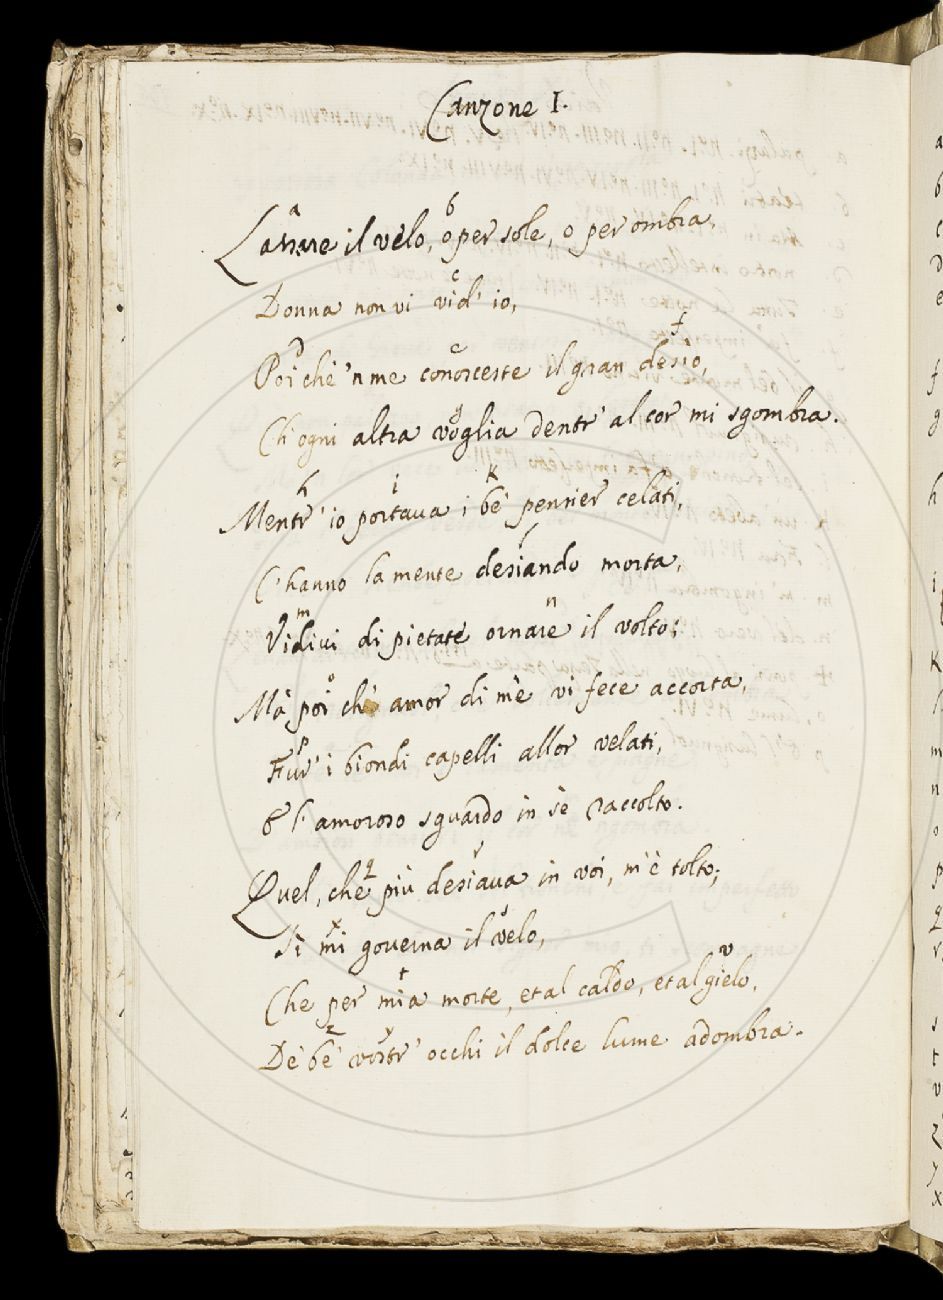 Canzone I.
Lassare il velo, o per sole, o per ombra,
Donna non vi vid' io,
Poi che 'n me conosceste il gran desio,
Ch' ogni altra voglia dentr' al cor mi sgombra.
Mentr' io portava i bè pensier celati,
C' hanno la mente desiando morta,
Vidivi di pietate ornare il volto;
Mà poi chè amor di mè vi fece accorta,
Fur' i biondi capelli allor velati,
E l' amoroso sguardo in sè raccolto.
Quel, che più desiava in voi, m' è tolto;
Sì mi governa il velo,
Che per mia morte, et al caldo, et al gielo,
De' bè vostr' occhi il dolce lume adombra.